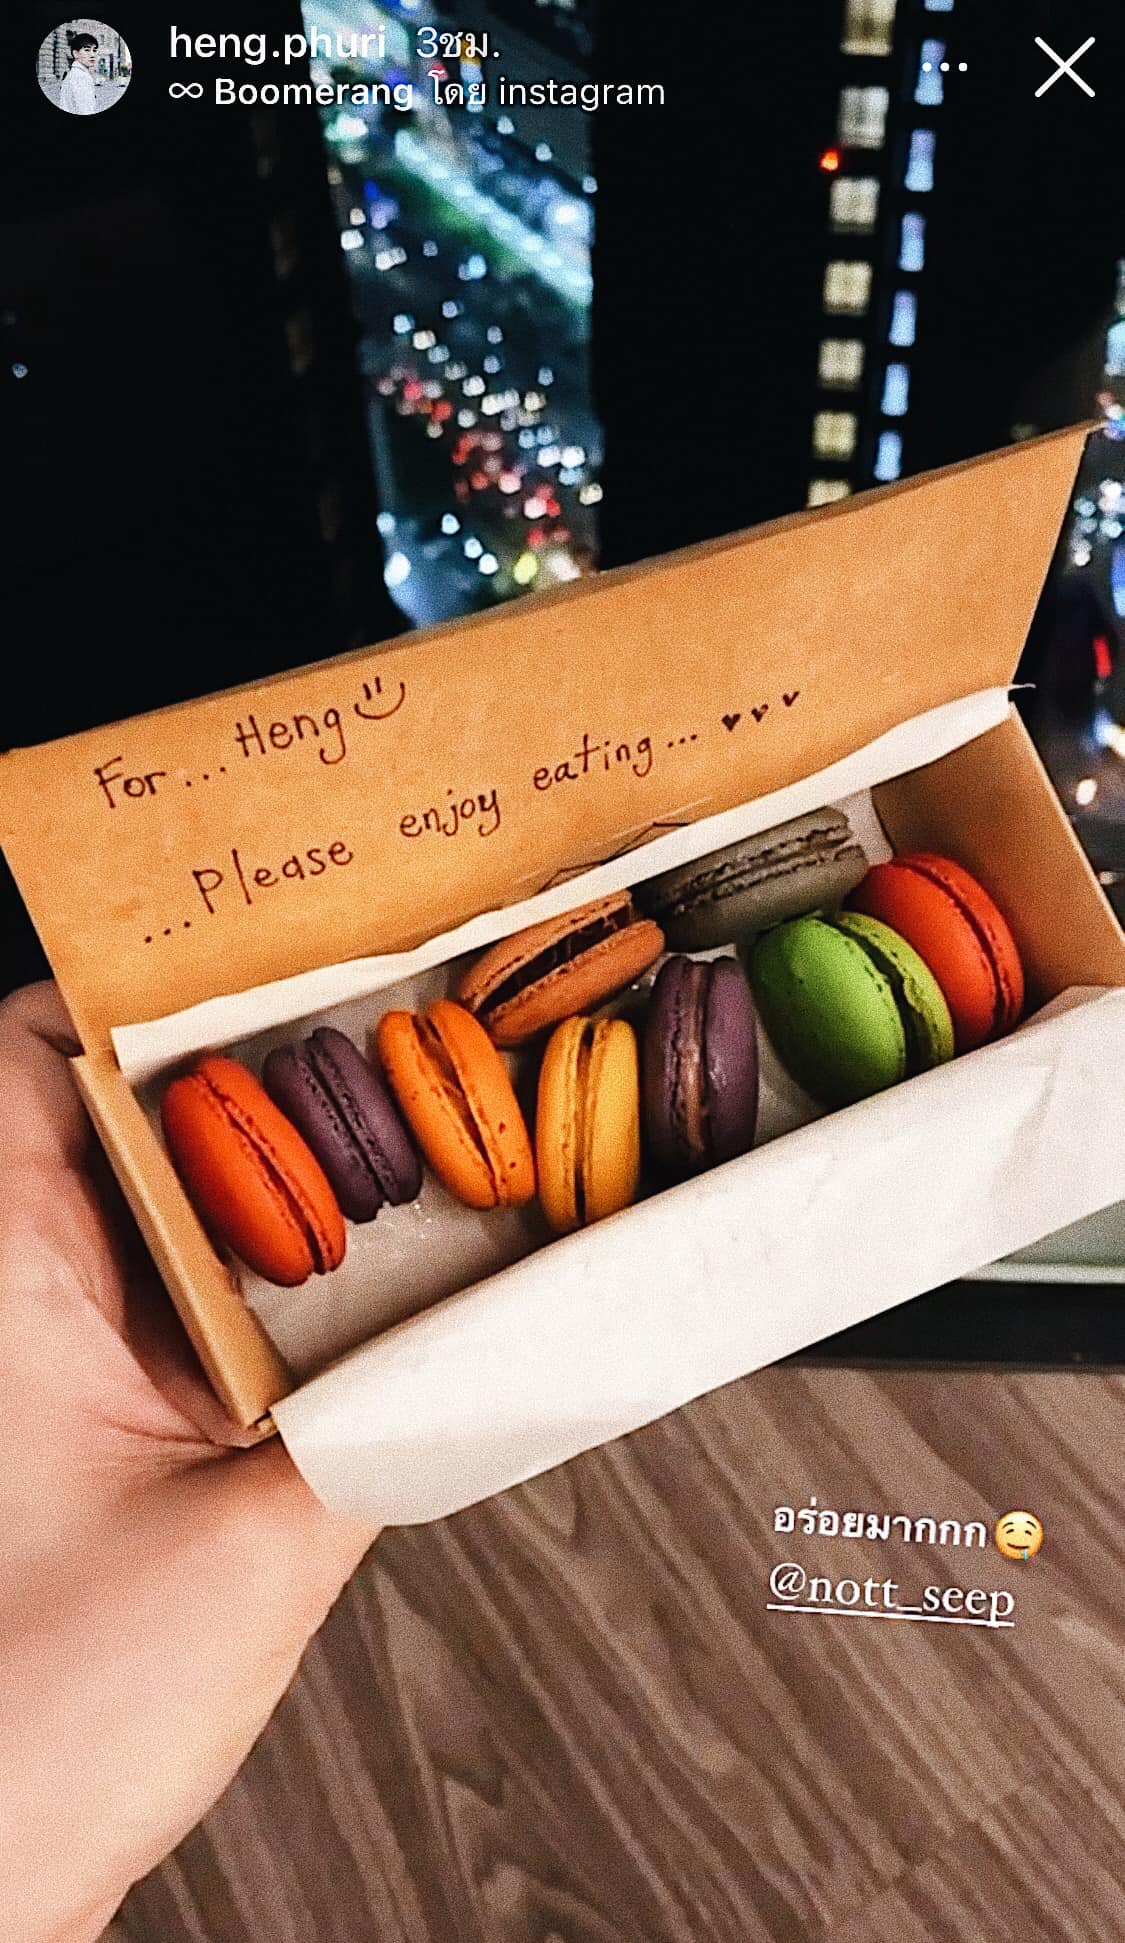 heng.phuri 3ชม.
∞ Boomerang โดย instagram
For... Heng
...Please enjoy eating...
อร่อยมากกก🤤
@nott_seep